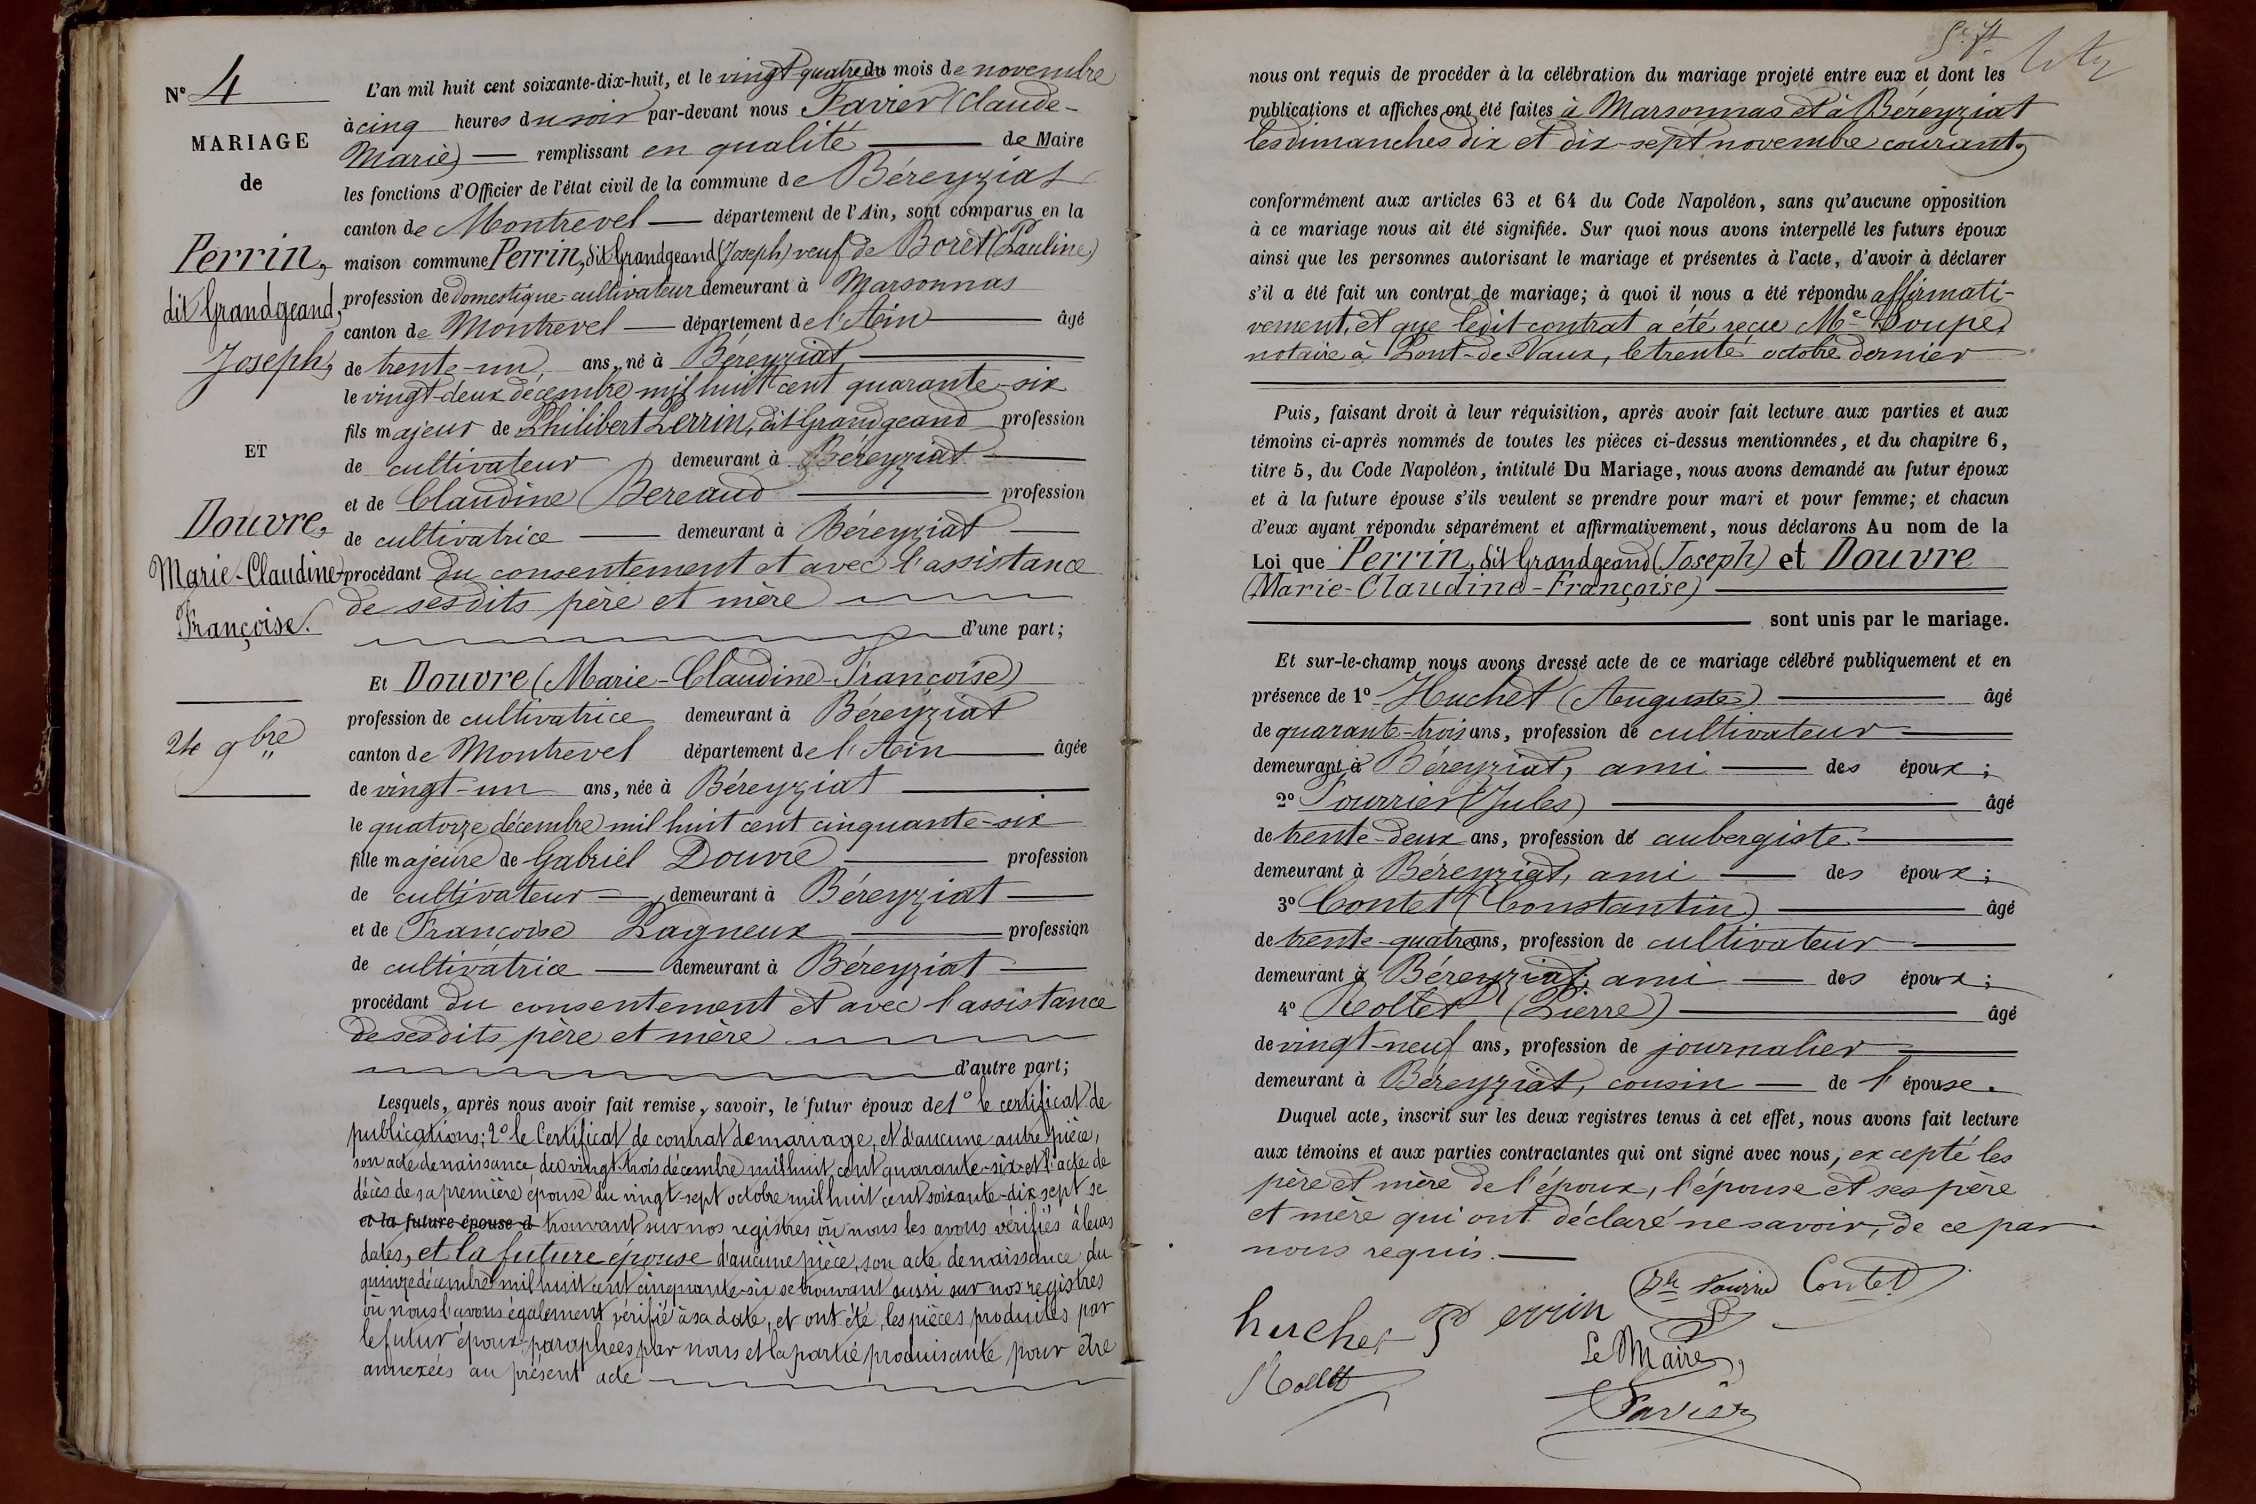 N° 4
MARIAGE
de
Perrin,
dit Grandgeand,
Joseph,
ET
Douvre,
Marie-Claudine-
Françoise.
24 9bre
L'an mil huit cent soixante-dix-huit, et le vingt-quatre du mois de novembre
à cinq heures du soir par-devant nous Favier (Claude-
Marie) remplissant en qualité de Maire
les fonctions d'Officier de l'état civil de la commune de Béreyziat
canton de Montrevel département de l'Ain, sont comparus en la
maison commune Perrin, dit Grandgeand (Joseph) veuf de Boret (Pauline)
profession de domestique-cultivateur demeurant à Marsonnas
canton de Montrevel département de l'Ain âgé
de trente-un, ans, né à Béreyziat
le vingt-deux décembre mil huit cent quarante-six
fils majeur de Philibert Perrin, dit Grandgeand profession
de cultivateur demeurant à Béreyziat
et de Claudine Bereaud profession
de cultivatrice demeurant à Béreyziat
procédant du consentement et avec l'assistance
de sesdits père et mère
d'une part;
Et Douvre (Marie-Claudine-Françoise)
profession de cultivatrice demeurant à Béreyziat
canton de Montrevel département de l'Ain âgée
de vingt-un ans, née à Béreyziat
le quatorze décembre mil huit cent cinquante-six
fille majeure de Gabriel Douvre profession
de cultivateur demeurant à Béreyziat
et de Françoise Pagneux profession
de cultivatrice demeurant à Béreyziat
procédant du consentement et avec l'assistance
de sesdits père et mère
d'autre part;
Lesquels, après nous avoir fait remise, savoir, le futur époux de 1° le certificat de
publications; 2° le Certificat de contrat de mariage, et d'aucune autre pièce,
son acte de naissance du vingt-trois décembre mil huit cent quarante-six et l'acte de
décès de sa première épouse du vingt-sept octobre mil huit cent soixante-dix sept se
et la future épouse d trouvant sur nos registres où nous les avons vérifiés à leurs
dates, et la future épouse d'aucune pièce, son acte de naissance du
quinze décembre mil huit cent cinquante-six se trouvant aussi sur nos registres
où nous l'avons également vérifié à sa date, et ont été, les pièces produites par
le futur époux, paraphées par nous et la partie produisante pour être
annexées au présent acte
nous ont requis de procéder à la célébration du mariage projeté entre eux et dont les
publications et affiches ont été faites à Marsonnas et à Béreyziat
les dimanches dix et dix-sept novembre courant,
conformément aux articles 63 et 64 du Code Napoléon, sans qu'aucune opposition
à ce mariage nous ait été signifiée. Sur quoi nous avons interpellé les futurs époux
ainsi que les personnes autorisant le mariage et présentes à l'acte, d'avoir à déclarer
s'il a été fait un contrat de mariage; à quoi il nous a été répondu affirmati-
vement, et que ledit contrat a été reçu Me
notaire à Pont-de-Vaux, le trente octobre dernier
Puis, faisant droit à leur réquisition, après avoir fait lecture aux parties et aux
témoins ci-après nommés de toutes les pièces ci-dessus mentionnées, et du chapitre 6,
titre 5, du Code Napoléon, intitulé Du Mariage, nous avons demandé au futur époux
et à la future épouse s'ils veulent se prendre pour mari et pour femme; et chacun
d'eux ayant répondu séparément et affirmativement, nous déclarons Au nom de la
Loi que Perrin, dit Grandgeand (Joseph) et Douvre
(Marie-Claudine-Françoise)
sont unis par le mariage.
Et sur-le-champ nous avons dressé acte de ce mariage célébré publiquement et en
présence de 1° Huchet (Auguste) âgé
de quarante-trois ans, profession de cultivateur
demeurant à Béreyziat, ami des époux;
2° Fourrier (Jules) âgé
de trente-deux ans, profession de aubergiste
demeurant à Béreyziat, ami des époux;
3° Contet (Constantin) âgé
de trente-quatre ans, profession de cultivateur
demeurant à Béreyziat, ami des époux;
4° Rollet (Pierre) âgé
de vingt-neuf ans, profession de journalier
demeurant à Béreyziat, cousin de l'épouse.
Duquel acte, inscrit sur les deux registres tenus à cet effet, nous avons fait lecture
aux témoins et aux parties contractantes qui ont signé avec nous, excepté les
père et mère de l'époux, l'épouse et ses père
et mère qui ont déclaré ne savoir, de ce par
nous requis.
huchet Perrin Contet
Rollet
Le Maire,
Favier